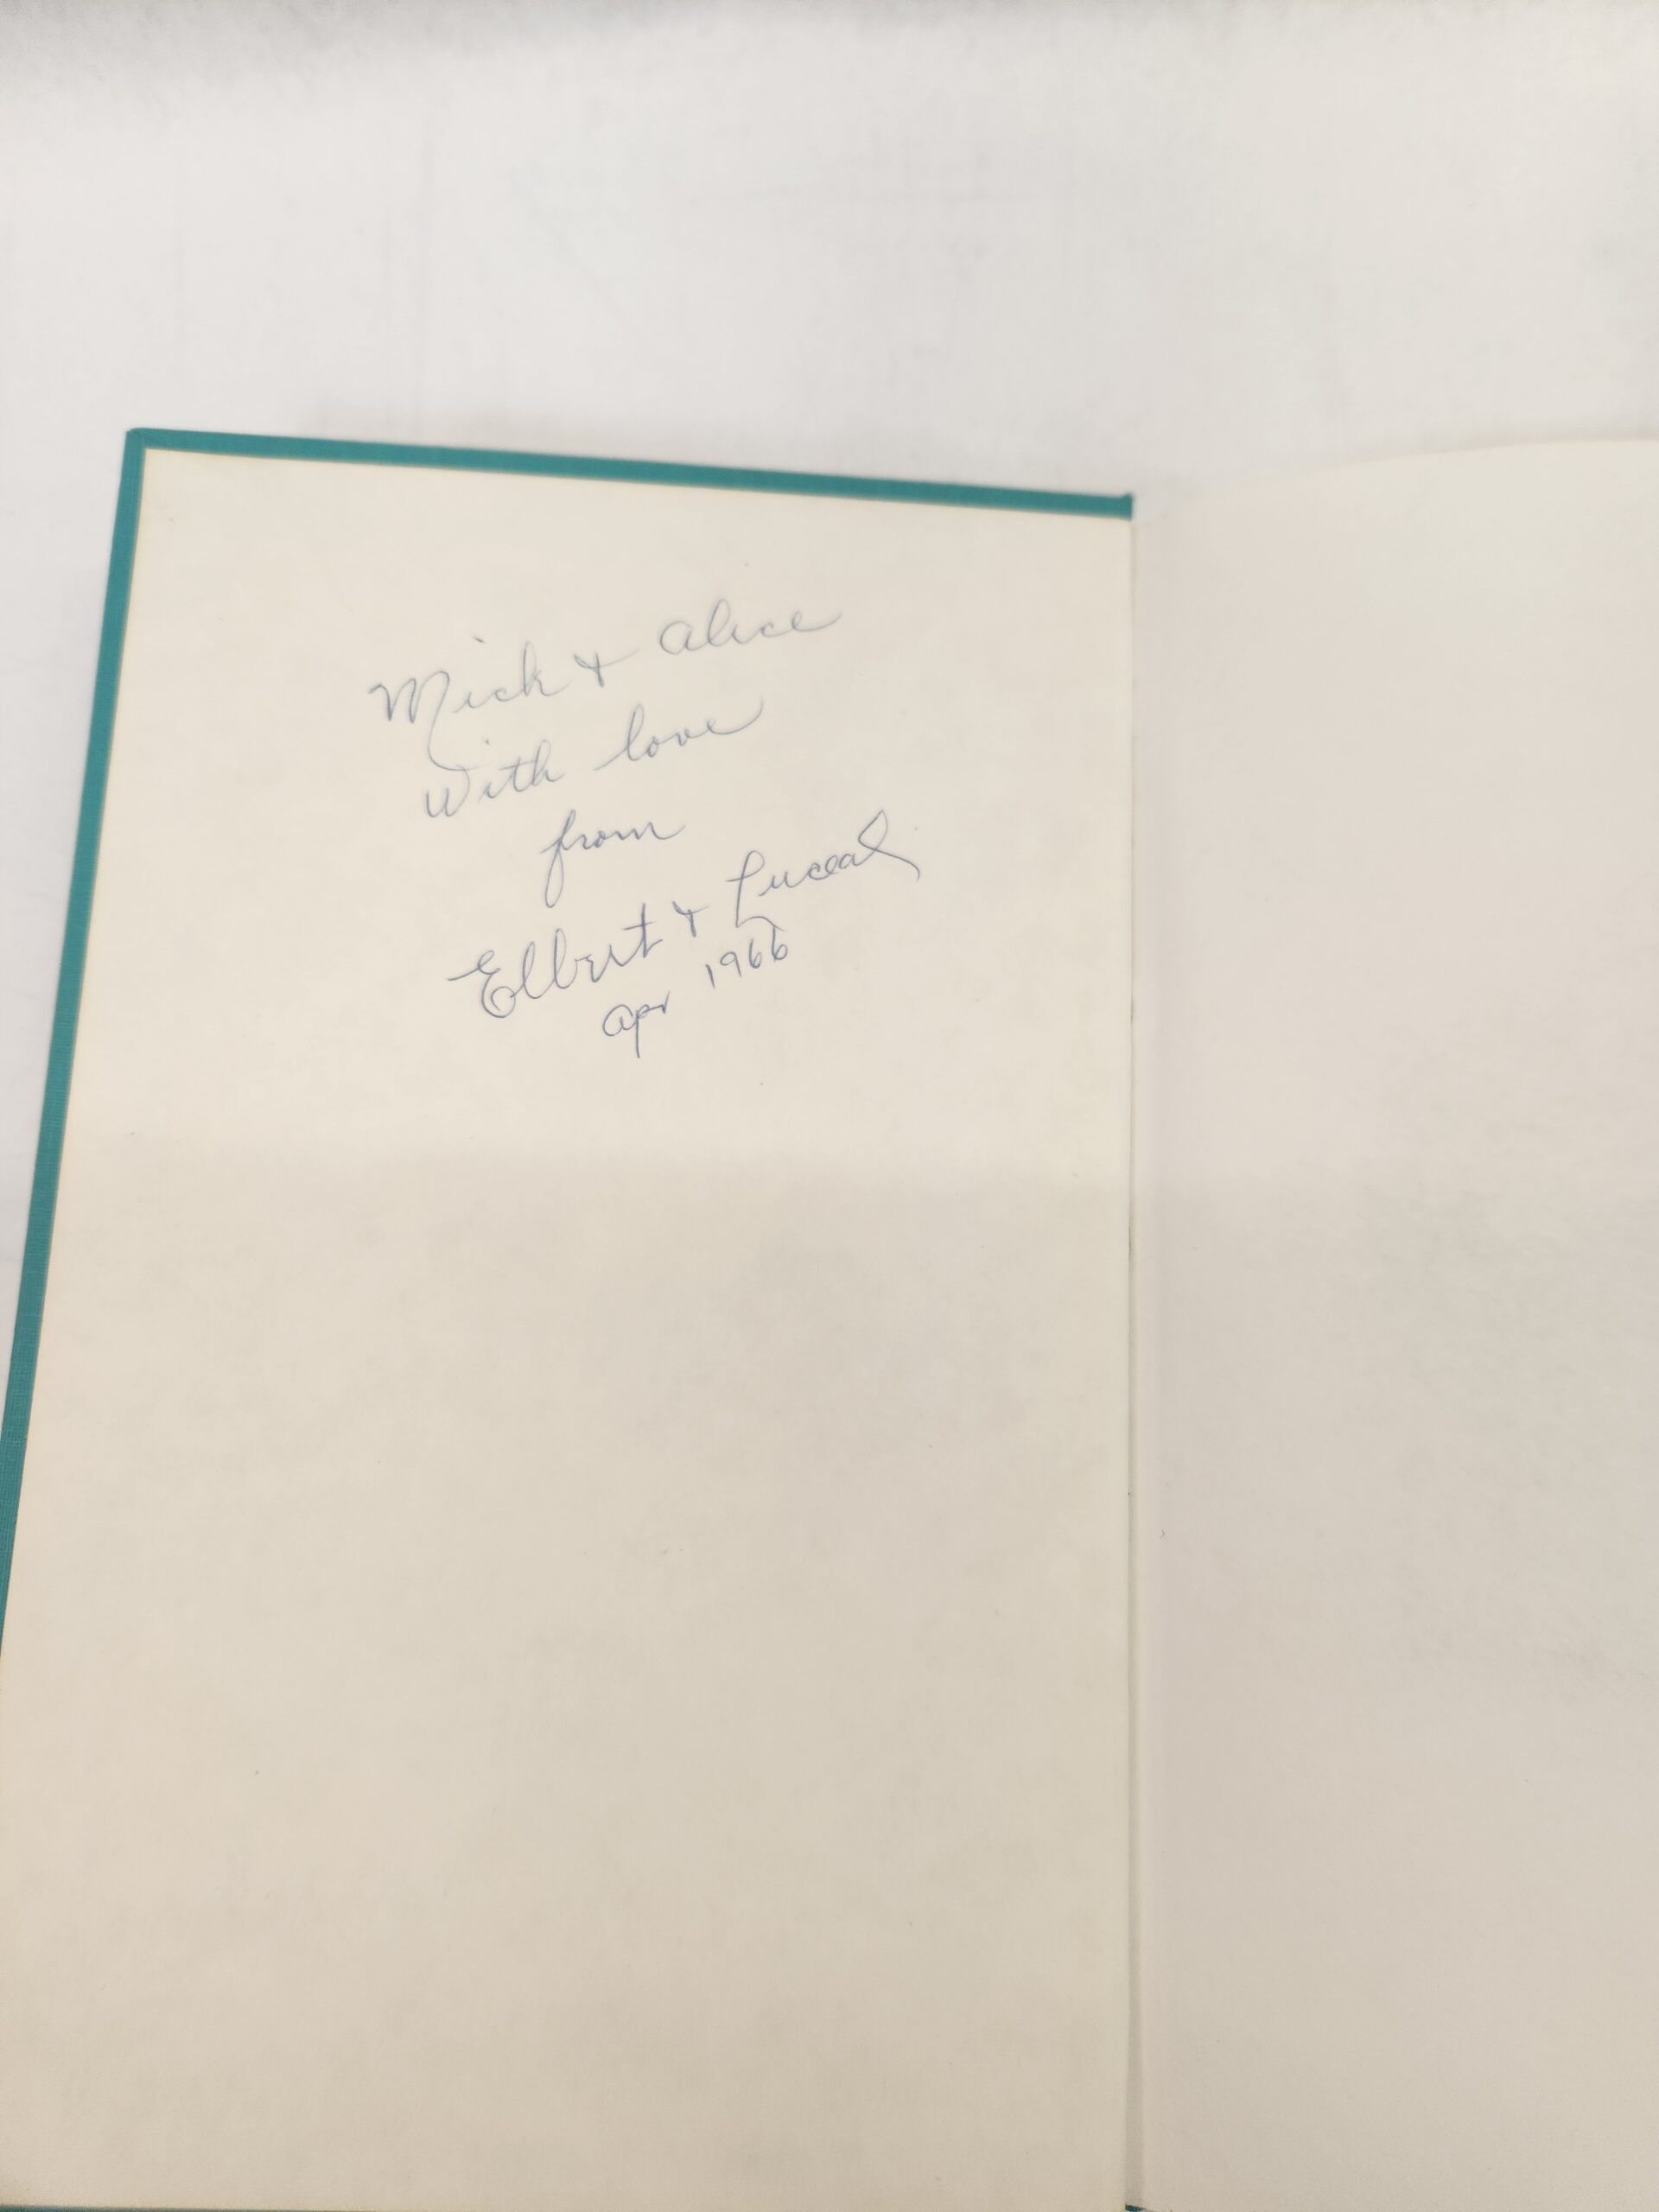 Mick & Alice
With love
from
Elbert & Luceal
Apr 1966